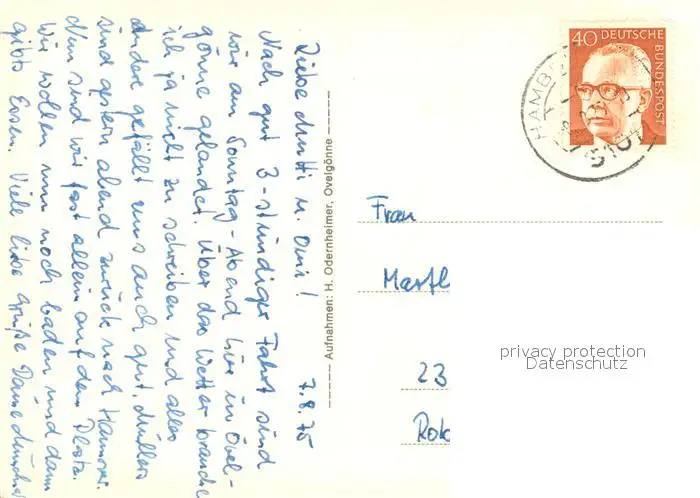 Liebe Mutti u. Omi! 7.8.75
Nach gut 3-stündiger Fahrt sind
wir am Sonntag-Abend hier in Ovel-
gönne gelandet. Über das Wetter brauche
ich ja nicht zu schreiben und alles
andre gefällt uns auch gut. Müllers
sind gestern abend zurück nach Hannover.
Nun sind wir fast allein auf dem Platz.
Wir wollen nun noch baden und dann
gibts Essen. Viele liebe Grüße
Aufnahmen: H. Odernheimer, Ovelgönne
40 DEUTSCHE
BUNDESPOST
HAMB
Frau
23
privacy protection
Datenschutz